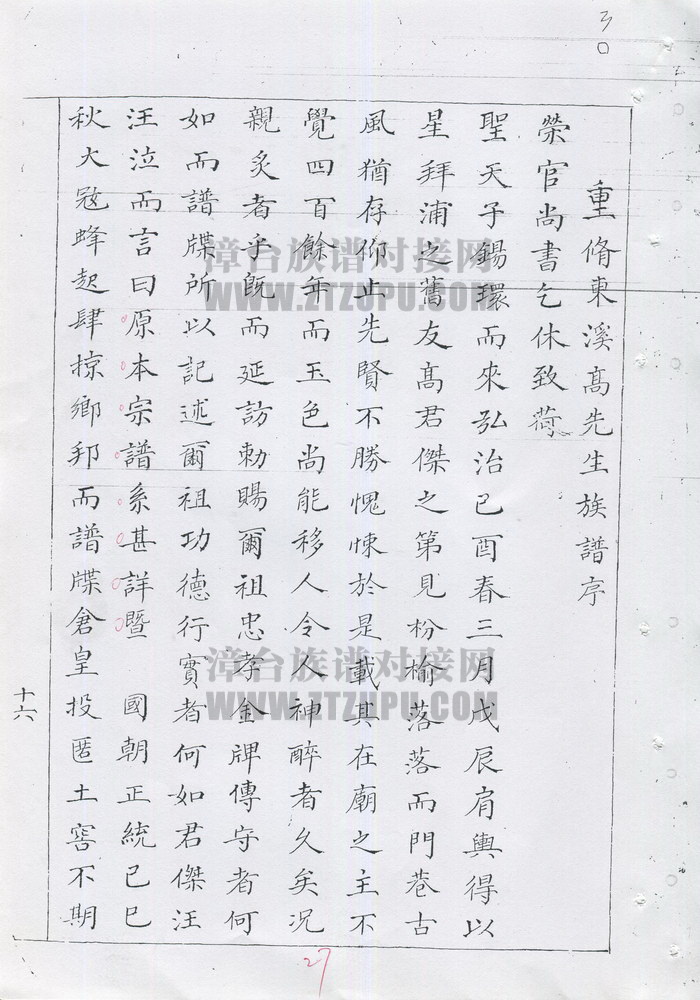 30
重脩東溪高先生族譜序
榮官尚書乞休致荷
聖天子錫環而來弘治己酉春三月戊辰肩輿得以
星拜浦之舊友高君傑之第見枌榆落落而門巷古
風猶存仰止先賢不勝愧悚於是載其在廟之主不
覺四百餘年而玉色尚能移人令人神醉者久矣况
親炙者乎既而延訪勅賜爾祖忠孝金牌傳守者何
如而譜牒所以記述爾祖功德行實者何如君傑汪
汪泣而言曰原本宗譜系甚詳暨 國朝正統己巳
秋大冦蜂起肆掠鄉邦而譜牒倉皇投匿土窖不期
十六
27
漳台族谱对接网
WWW.ZTZUPU.COM
漳台族谱对接网
WWW.ZTZUPU.COM